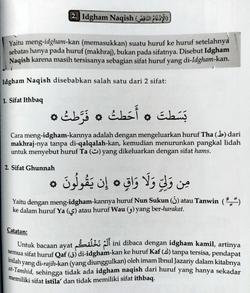 2. Idgham Naqish (الإِدْغَامُ النَّاقِصُ)
Yaitu meng-idgham-kan (memasukkan) suatu huruf ke huruf setelahnya
sebatas hanya pada huruf (makhraj), bukan pada sifatnya. Disebut Idgham
Naqish karena masih tersisanya sebagian sifat huruf yang di-Idgham-kan.
Idgham Naqish disebabkan salah satu dari 2 sifat:
1. Sifat Ithbaq
بَسَطتَ ۞ أَحَطتُ ۞ فَرَّطتُ ۞
Cara meng-idgham-kannya adalah dengan mengeluarkan huruf Tha (ط) dari
makhraj-nya tanpa di-qalqalah-kan, kemudian menurunkan pangkal lidah
untuk menyebut huruf Ta (ت) yang dikeluarkan dengan sifat hams.
2. Sifat Ghunnah
مِن وَلِيٍّ وَلَا وَاقٍ ۞ إِن يَقُولُونَ ۞
Yaitu dengan meng-idgham-kannya huruf Nun Sukun (نْ) atau Tanwin
ke dalam huruf Ya (ي) atau huruf Wau (و) yang ber-harakat.
Catatan:
Untuk bacaan ayat أَلَمْ نَخْلُقكُّم ini dibaca dengan idgham kamil, artinya
semua sifat huruf Qaf (ق) di-idgham-kan ke huruf Kaf (ك) tanpa tersisa, pendapat
inilah yang di-rajih-kan (yang diunggulkan) oleh imam Ibnul Jazariy dalam kitabnya
at-Tamhid, sehingga tidak ada idgham naqish dari huruf yang hanya sekadar
memiliki sifat istila' dan tidak memiliki sifat ithbaq.